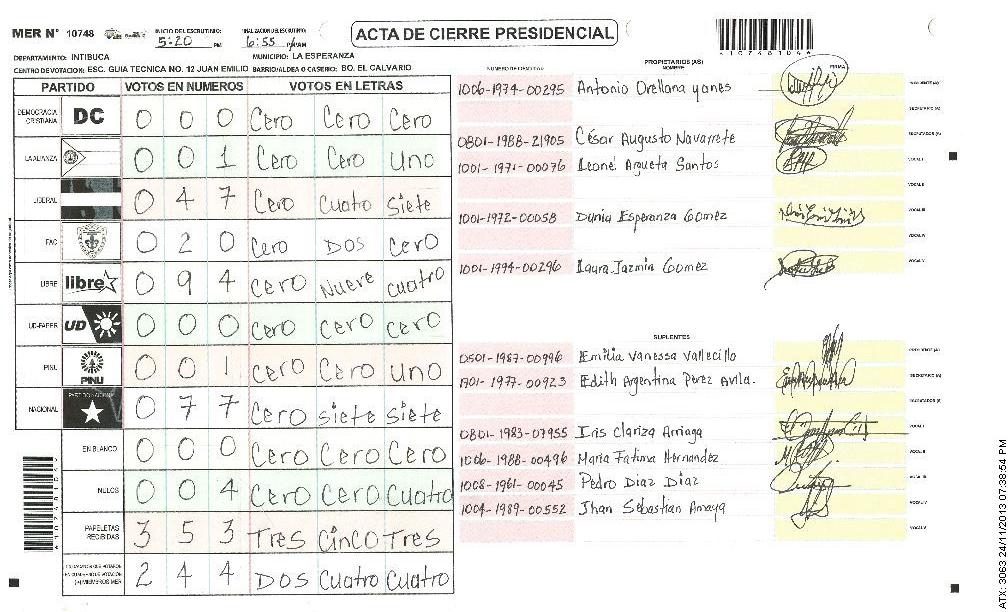 MER N° 10748
INICIO DEL ESCRUTINIO: 5:20 PM
FINALIZACION DEL ESCRUTINIO: 6:55 P/AM
ACTA DE CIERRE PRESIDENCIAL
DEPARTAMENTO: INTIBUCA MUNICIPIO: LA ESPERANZA
CENTRO DE VOTACION: ESC. GUIA TECNICA NO. 12 JUAN EMILIO BARRIO/ALDEA O CASERIO: BO. EL CALVARIO
PARTIDO VOTOS EN NUMEROS VOTOS EN LETRAS
DEMOCRACIA CRISTIANA DC 0 0 0 Cero Cero Cero
LA ALIANZA 0 0 1 Cero Cero Uno
LIBERAL 0 4 7 Cero Cuatro Siete
FAC 0 2 0 Cero DOS Cero
LIBRE libre 0 9 4 Cero Nueve Cuatro
UD-FAPER UD 0 0 0 Cero Cero Cero
PINU PINU 0 0 1 Cero Cero Uno
NACIONAL PARTIDO NACIONAL 0 7 7 Cero Siete Siete
EN BLANCO 0 0 0 Cero Cero Cero
NULOS 0 0 4 Cero Cero Cuatro
PAPELETAS RECIBIDAS 3 5 3 Tres Cinco Tres
2 4 4 DOS Cuatro Cuatro
NUMERO DE IDENTIDAD PROPIETARIOS (AS) NOMBRE FIRMA
1006-1974-00295 Antonio Orellana yanes PRESIDENTE (A)
SECRETARIO (A)
0801-1988-21905 César Augusto Navarrete ESCRUTADOR (A)
1001-1971-00076 Leoné Argueta Santos VOCAL I
VOCAL II
1001-1972-00058 Dunia Esperanza Gomez VOCAL III
VOCAL IV
1001-1994-00296 Laura Jazmin Gomez VOCAL V
SUPLENTES
0501-1987-00996 Emilia Vanessa Vallecillo PRESIDENTE (A)
1701-1977-00923 Edith Argentina Perez Avila. SECRETARIO (A)
ESCRUTADOR (A)
0801-1983-07955 Iris Clariza Arriaga VOCAL I
1006-1988-00496 Maria Fatima Hernandez VOCAL II
1008-1961-00045 Pedro Diaz Diaz VOCAL III
1004-1989-00552 Jhan Sebastian Amaya VOCAL IV
VOCAL V
ATX: 3063 24/11/2013 07:38:54 PM